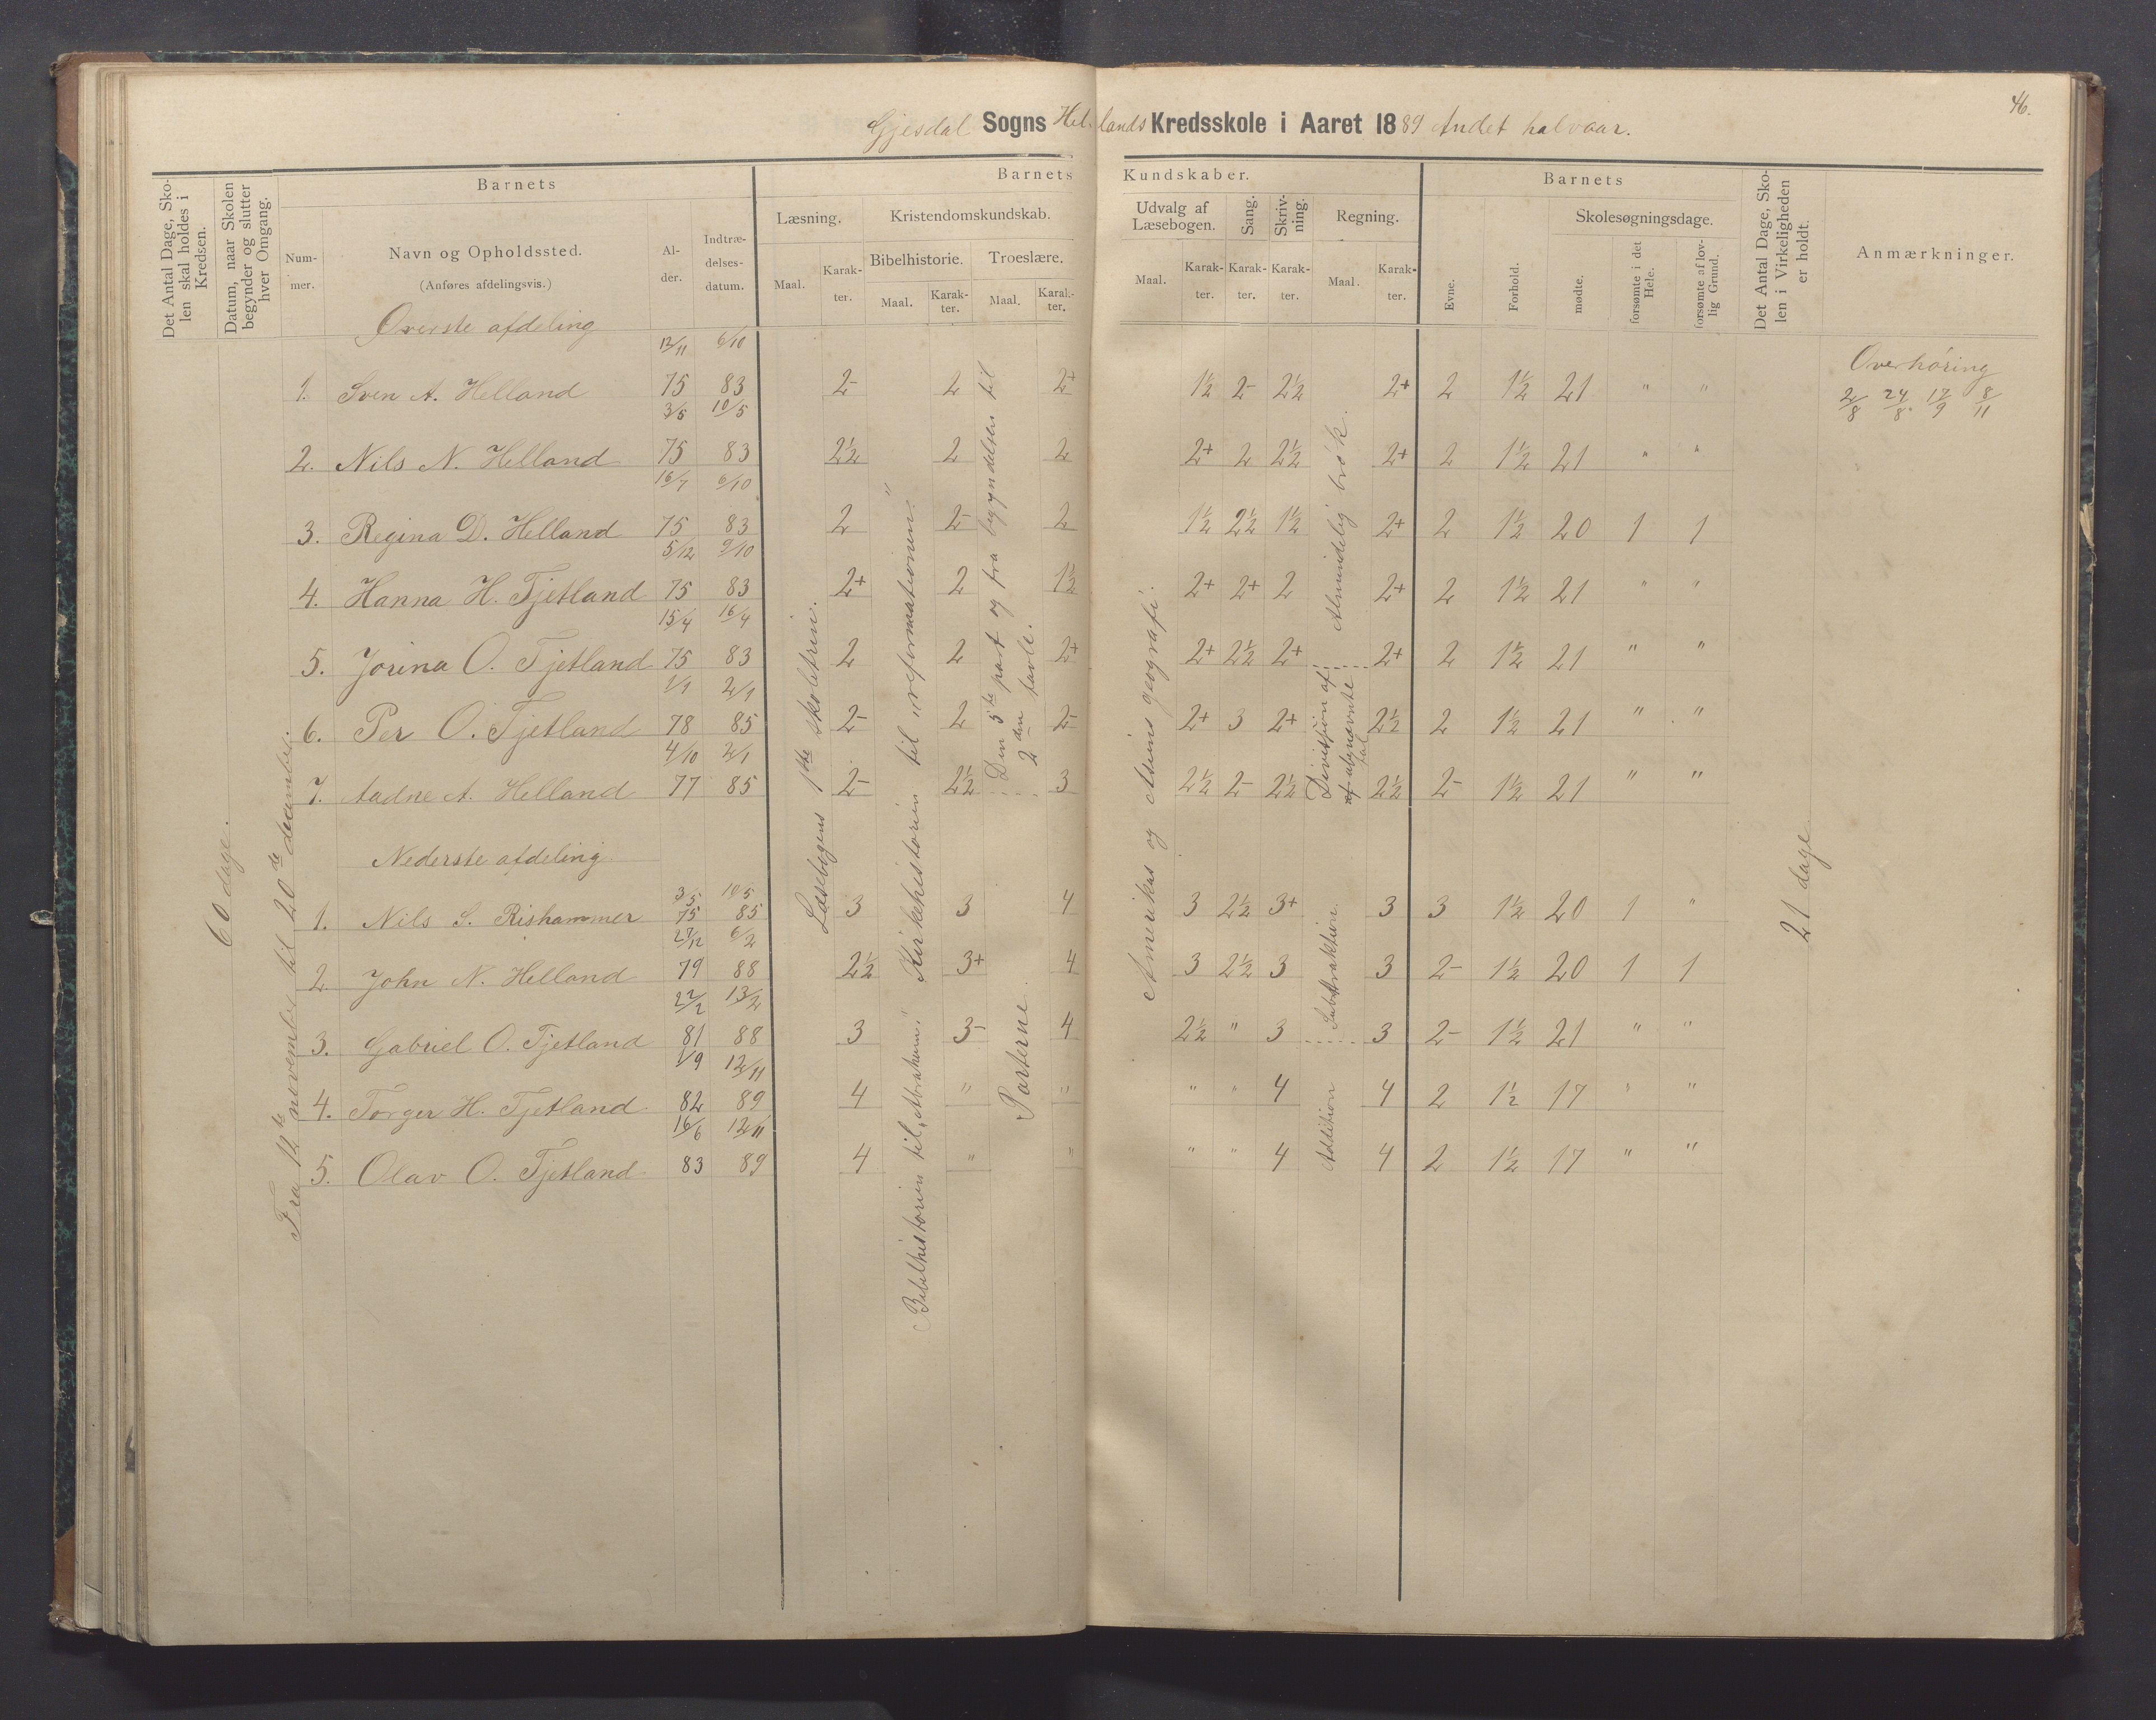 46.
Gjesdal Sogns Hellands Kredsskole i Aaret 1889 Andet halvaar.
Det Antal Dage, Sko-
len skal holdes i
Kredsen.
Datum, naar Skolen
begynder og slutter
hver Omgang.
Barnets
Num-
mer.
Navn og Opholdssted.
(Anføres afdelingsvis.)
Al-
der.
Indtræ-
delses-
datum.
Barnets Kundskaber.
Læsning.
Maal.
Karak-
ter.
Kristendomskundskab.
Bibelhistorie.
Maal.
Karak-
ter.
Troeslære.
Maal.
Karak-
ter.
Udvalg af
Læsebogen.
Maal.
Karak-
ter.
Sang.
Karak-
ter.
Skriv-
ning.
Karak-
ter.
Regning.
Maal.
Karak-
ter.
Barnets
Evne.
Forhold.
Skolesøgningsdage.
mødte.
forsømte i det
Hele.
forsømte af lov-
lig Grund.
Det Antal Dage, Sko-
len i Virkeligheden
er holdt.
Anmærkninger.
60 dage.
Fra 12te november til 20de december.
Øverste afdeling
12/11 6/10
1. Sven A. Helland 75 83 2- 2 2+ 1½ 2- 2½ 2+ 2 1½ 21 " "
3/5 10/5
2. Nils N. Helland 75 83 2½ 2 2 2+ 2 2½ 2+ 2 1½ 21 " "
16/7 6/10
3. Regina D. Helland 75 83 2 2- 2 1½ 2½ 1½ 2+ 2 1½ 20 1 1
5/12 9/10
4. Hanna H. Tjetland 75 83 2+ 2 1½ 2+ 2+ 2 2+ 2 1½ 21 " "
15/4 16/4
5. Jorina O. Tjetland 75 83 2 2 2+ 2+ 2½ 2+ 2+ 2 1½ 21 " "
1/1 2/1
6. Per O. Tjetland 78 85 2- 2 2- 2+ 3 2+ 2½ 2 1½ 21 " "
4/10 2/1
7. Aadne A. Helland 77 85 2- 2½ 3 2½ 2- 2½ 2½ 2- 1½ 21 " "
Nederste afdeling
3/5 10/5
1. Nils S. Rishammer 75 85 3 3 4 3 2½ 3+ 3 3 1½ 20 1 "
27/12 6/2
2. John N. Helland 79 88 2½ 3+ 4 3 2½ 3 3 2- 1½ 20 1 1
22/2 13/2
3. Gabriel O. Tjetland 81 88 3 3- 4 2½ " 3 3 2- 1½ 21 " "
1/9 12/11
4. Torger H. Tjetland 82 89 4 " " " " 4 4 2 1½ 17 " "
16/6 12/11
5. Olav O. Tjetland 83 89 4 " " " " 4 4 2 1½ 17 " "
Læsebogens 1ste skoletrin.
Bibelhistorien til "Abraham."
Kirkehistorien til "reformationen."
Den 5te part og fra begyndelsen til
2den tavle.
Parterne.
Amerikas og Asiens geografi.
Almindelig brøk.
Division af
ubenævnte
tal
Subtraktion.
Addition
21 dage
Overhøring
2/8 24/8. 17/9 8/11